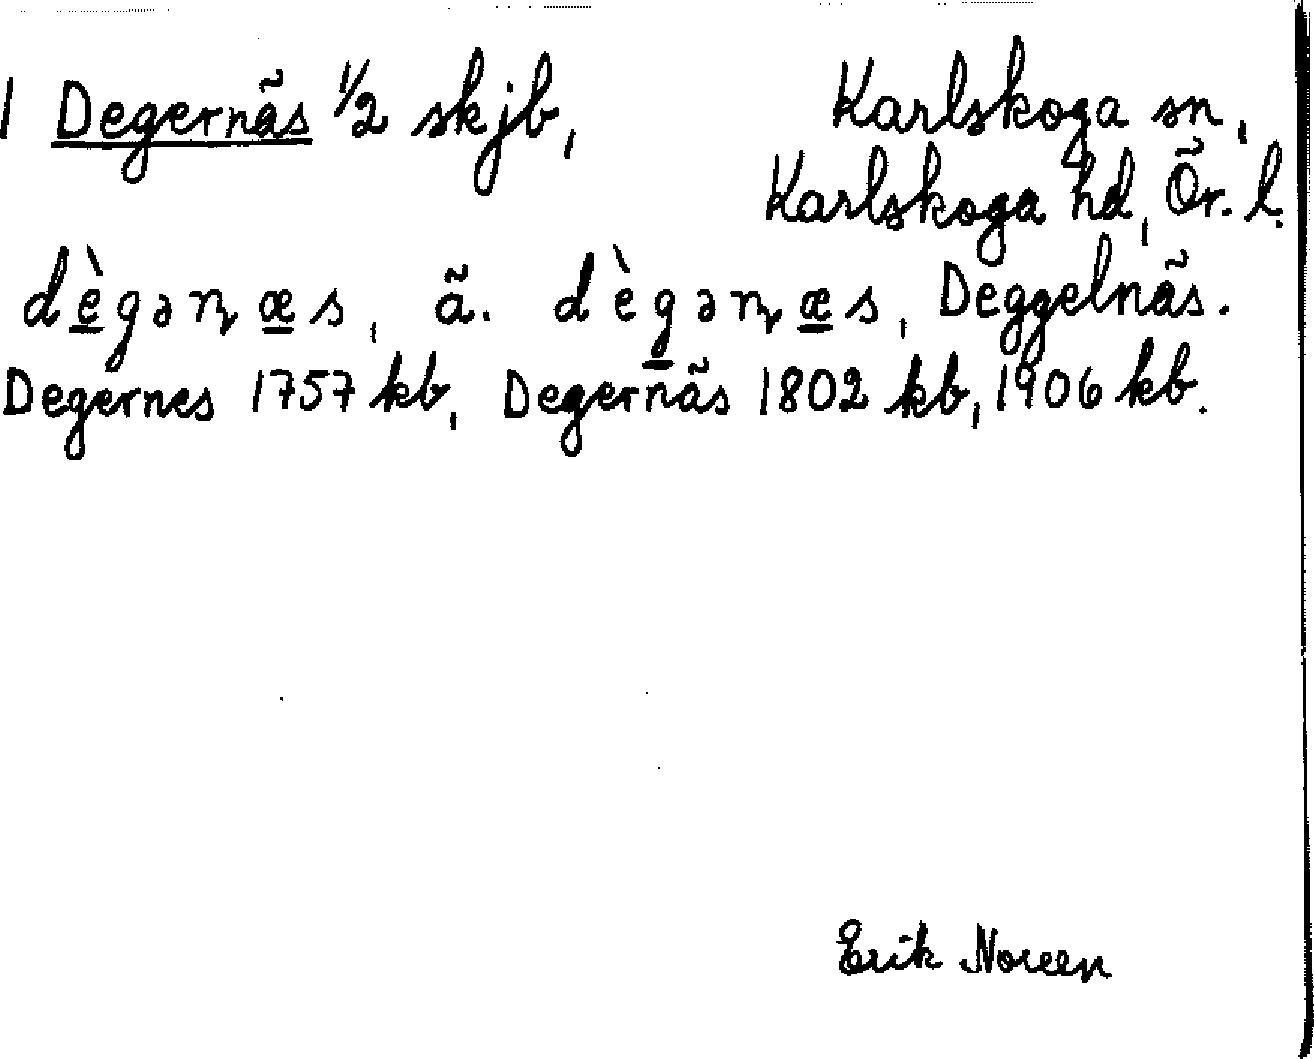 1 Degernäs 1/2 skjb, Karlskoga sn,
Karlskoga hd, Ör. l.
dè̱gəɳæ̱s, ä. dèg̱əɳæ̱s, Deggelnäs.
Degernes 1757 kb, Degernäs 1802 kb, 1906 kb.
Erik Noreen